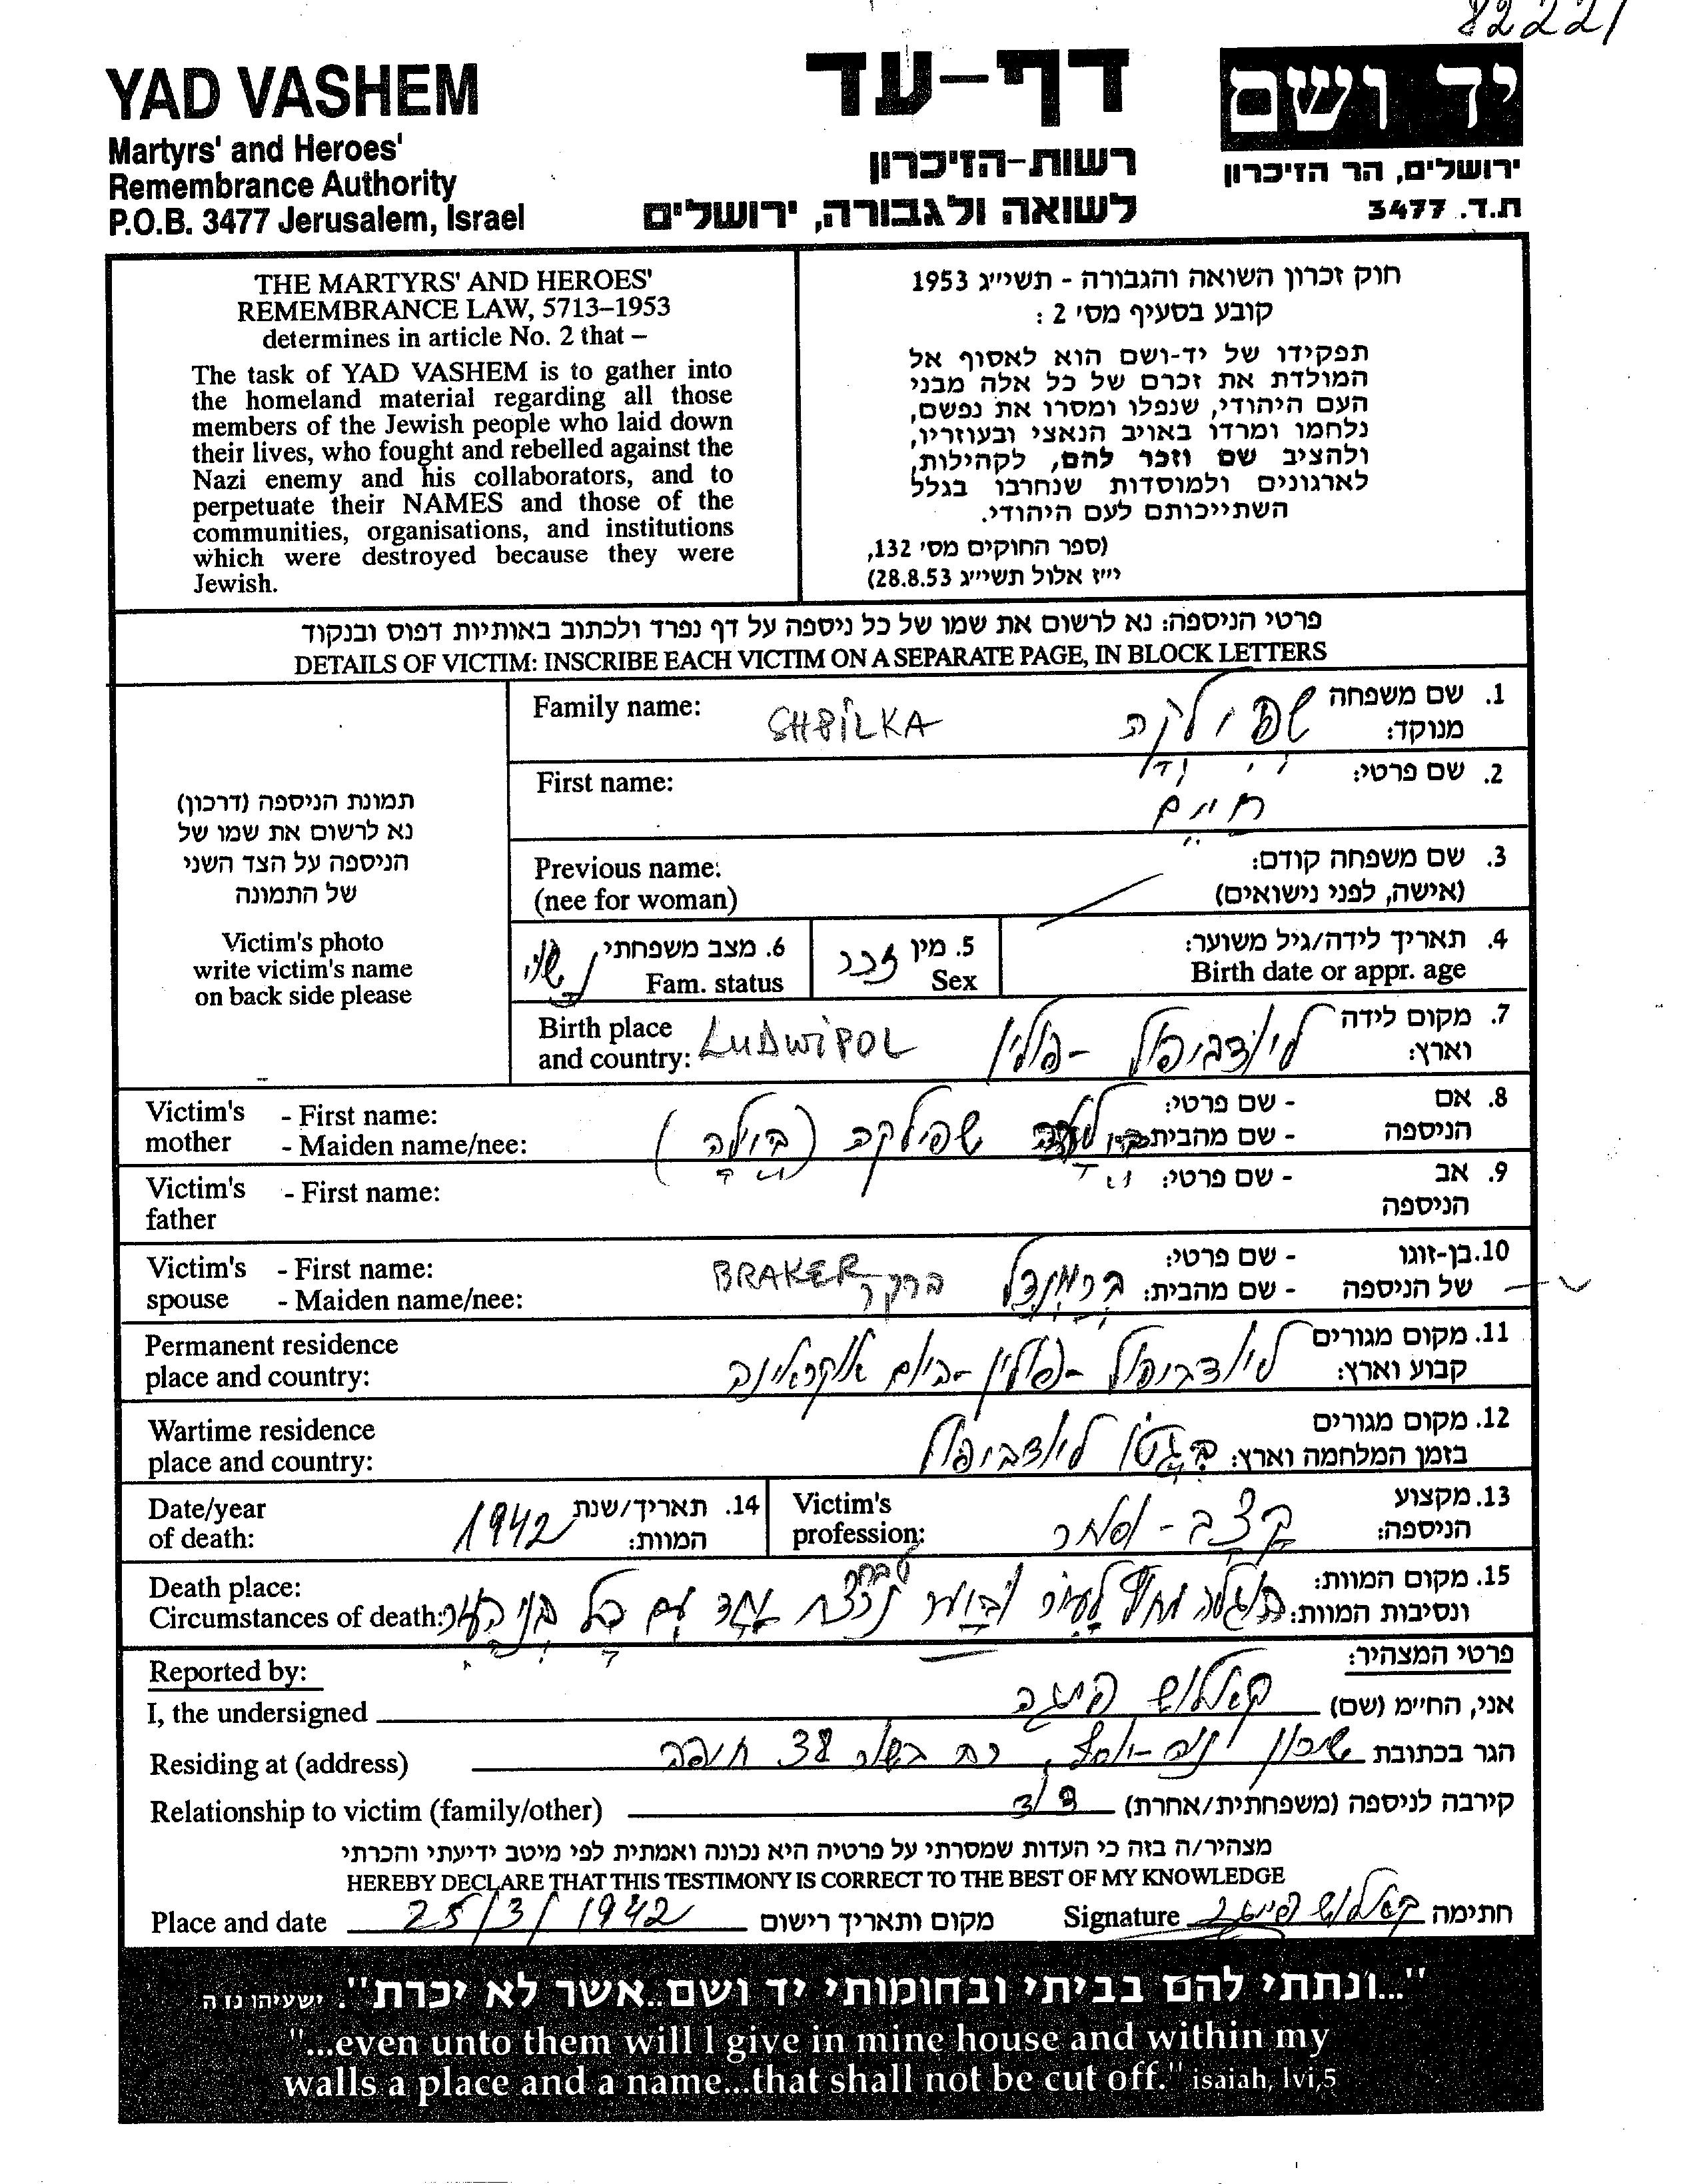 82221
YAD VASHEM
Martyrs' and Heroes'
Remembrance Authority
P.O.B. 3477 Jerusalem, Israel
דף-עד
רשות-הזיכרון
לשואה ולגבורה, ירושלים
יד ושם
ירושלים, הר הזיכרון
ת.ד. 3477
THE MARTYRS' AND HEROES'
REMEMBRANCE LAW, 5713–1953
determines in article No. 2 that –
The task of YAD VASHEM is to gather into
the homeland material regarding all those
members of the Jewish people who laid down
their lives, who fought and rebelled against the
Nazi enemy and his collaborators, and to
perpetuate their NAMES and those of the
communities, organisations, and institutions
which were destroyed because they were
Jewish.
חוק זכרון השואה והגבורה - תשי״ג 1953
קובע בסעיף מס' 2 :
תפקידו של יד-ושם הוא לאסוף אל
המולדת את זכרם של כל אלה מבני
העם היהודי, שנפלו ומסרו את נפשם,
נלחמו ומרדו באויב הנאצי ובעוזריו,
ולהציב שם וזכר להם, לקהילות,
לארגונים ולמוסדות שנחרבו בגלל
השתייכותם לעם היהודי.
(ספר החוקים מס' 132,
י״ז אלול תשי״ג 28.8.53)
פרטי הניספה: נא לרשום את שמו של כל ניספה על דף נפרד ולכתוב באותיות דפוס ובנקוד
DETAILS OF VICTIM: INSCRIBE EACH VICTIM ON A SEPARATE PAGE, IN BLOCK LETTERS
תמונת הניספה (דרכון)
נא לרשום את שמו של
הניספה על הצד השני
של התמונה
Victim's photo
write victim's name
on back side please
Family name: SHPILKA שפילקה 1. שם משפחה
מנוקד:
First name: חיים 2. שם פרטי:
Previous name: 3. שם משפחה קודם:
(nee for woman) (אישה, לפני נישואים)
4. תאריך לידה/גיל משוער:
Birth date or appr. age
5. מין זכר
Sex
6. מצב משפחתי נשוי
Fam. status
Birth place LUDWIPOL לודביפול - פולין 7. מקום לידה
and country: וארץ:
Victim's - First name: - שם פרטי: 8. אם
mother - Maiden name/nee: שפילקה - שם מהבית: הניספה
Victim's - First name: - שם פרטי: 9. אב
father הניספה
Victim's - First name: - שם פרטי: 10. בן-זוגו
spouse - Maiden name/nee: BRAKER ברקר - שם מהבית: של הניספה
Permanent residence 11. מקום מגורים
place and country: לודביפול - פולין - כיום אוקראינה קבוע וארץ:
Wartime residence 12. מקום מגורים
place and country: בגטו לודביפול בזמן המלחמה וארץ:
Victim's 13. מקצוע
profession: קצב - סוחר הניספה:
Date/year 14. תאריך/שנת
of death: 1942 המוות:
Death place: 15. מקום המוות:
Circumstances of death: מחוץ לעיר נרצח עם כל בני העיר ונסיבות המוות:
Reported by: פרטי המצהיר:
I, the undersigned אני, החי״מ (שם)
Residing at (address) שכון 38 חיפה הגר בכתובת
Relationship to victim (family/other) קירבה לניספה (משפחתית/אחרת)
מצהיר/ה בזה כי העדות שמסרתי על פרטיה היא נכונה ואמתית לפי מיטב ידיעתי והכרתי
HEREBY DECLARE THAT THIS TESTIMONY IS CORRECT TO THE BEST OF MY KNOWLEDGE
Place and date 25/3/1942 מקום ותאריך רישום Signature חתימה
"...ונתתי להם בביתי ובחומותי יד ושם..אשר לא יכרת". ישעיהו נו ה
"...even unto them will I give in mine house and within my
walls a place and a name...that shall not be cut off." isaiah, lvi,5